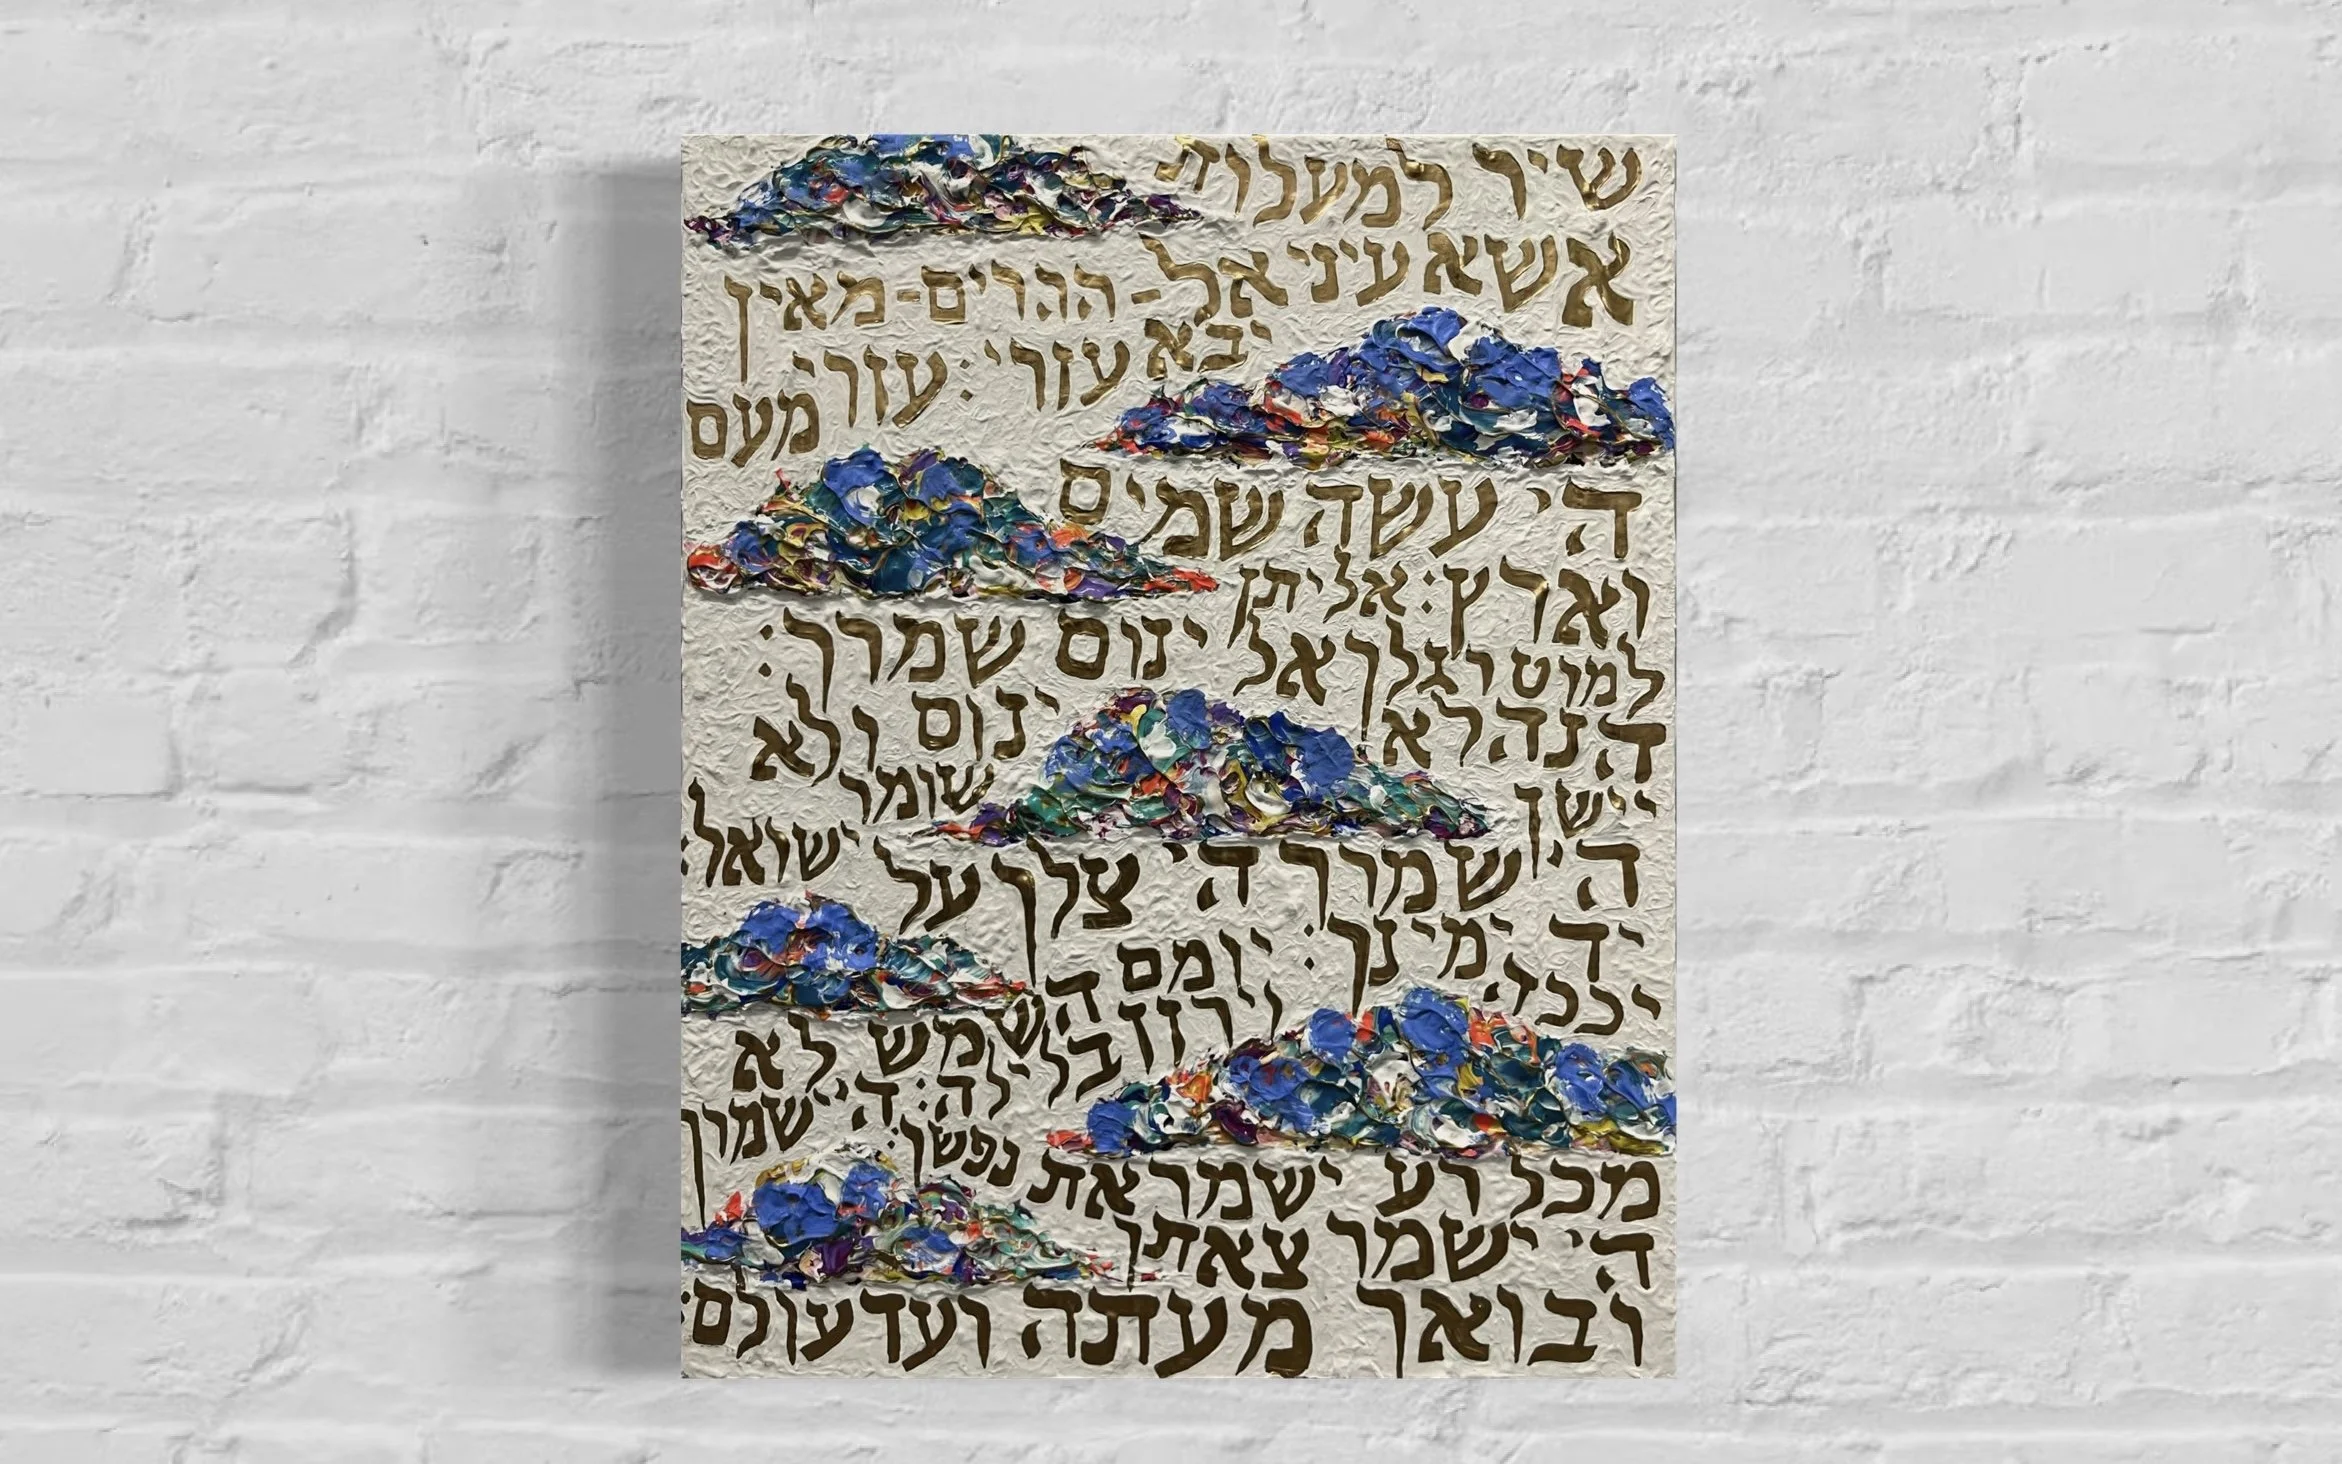 שיר למעלות
אשא עיני אל - ההרים - מאין
יבא עזרי : עזרי מעם
ה' עשה שמים
וארץ : אל יתן
למוט רגלך אל ינום שמרך :
הנה לא ינום ולא
יישן שומר ישראל :
ה' שמרך ה' צלך על
יד ימינך : יומם
השמש לא
יככה וירח בלילה : ה' ישמרך
מכל רע ישמר את נפשך :
ה' ישמר צאתך
ובואך מעתה ועד עולם :